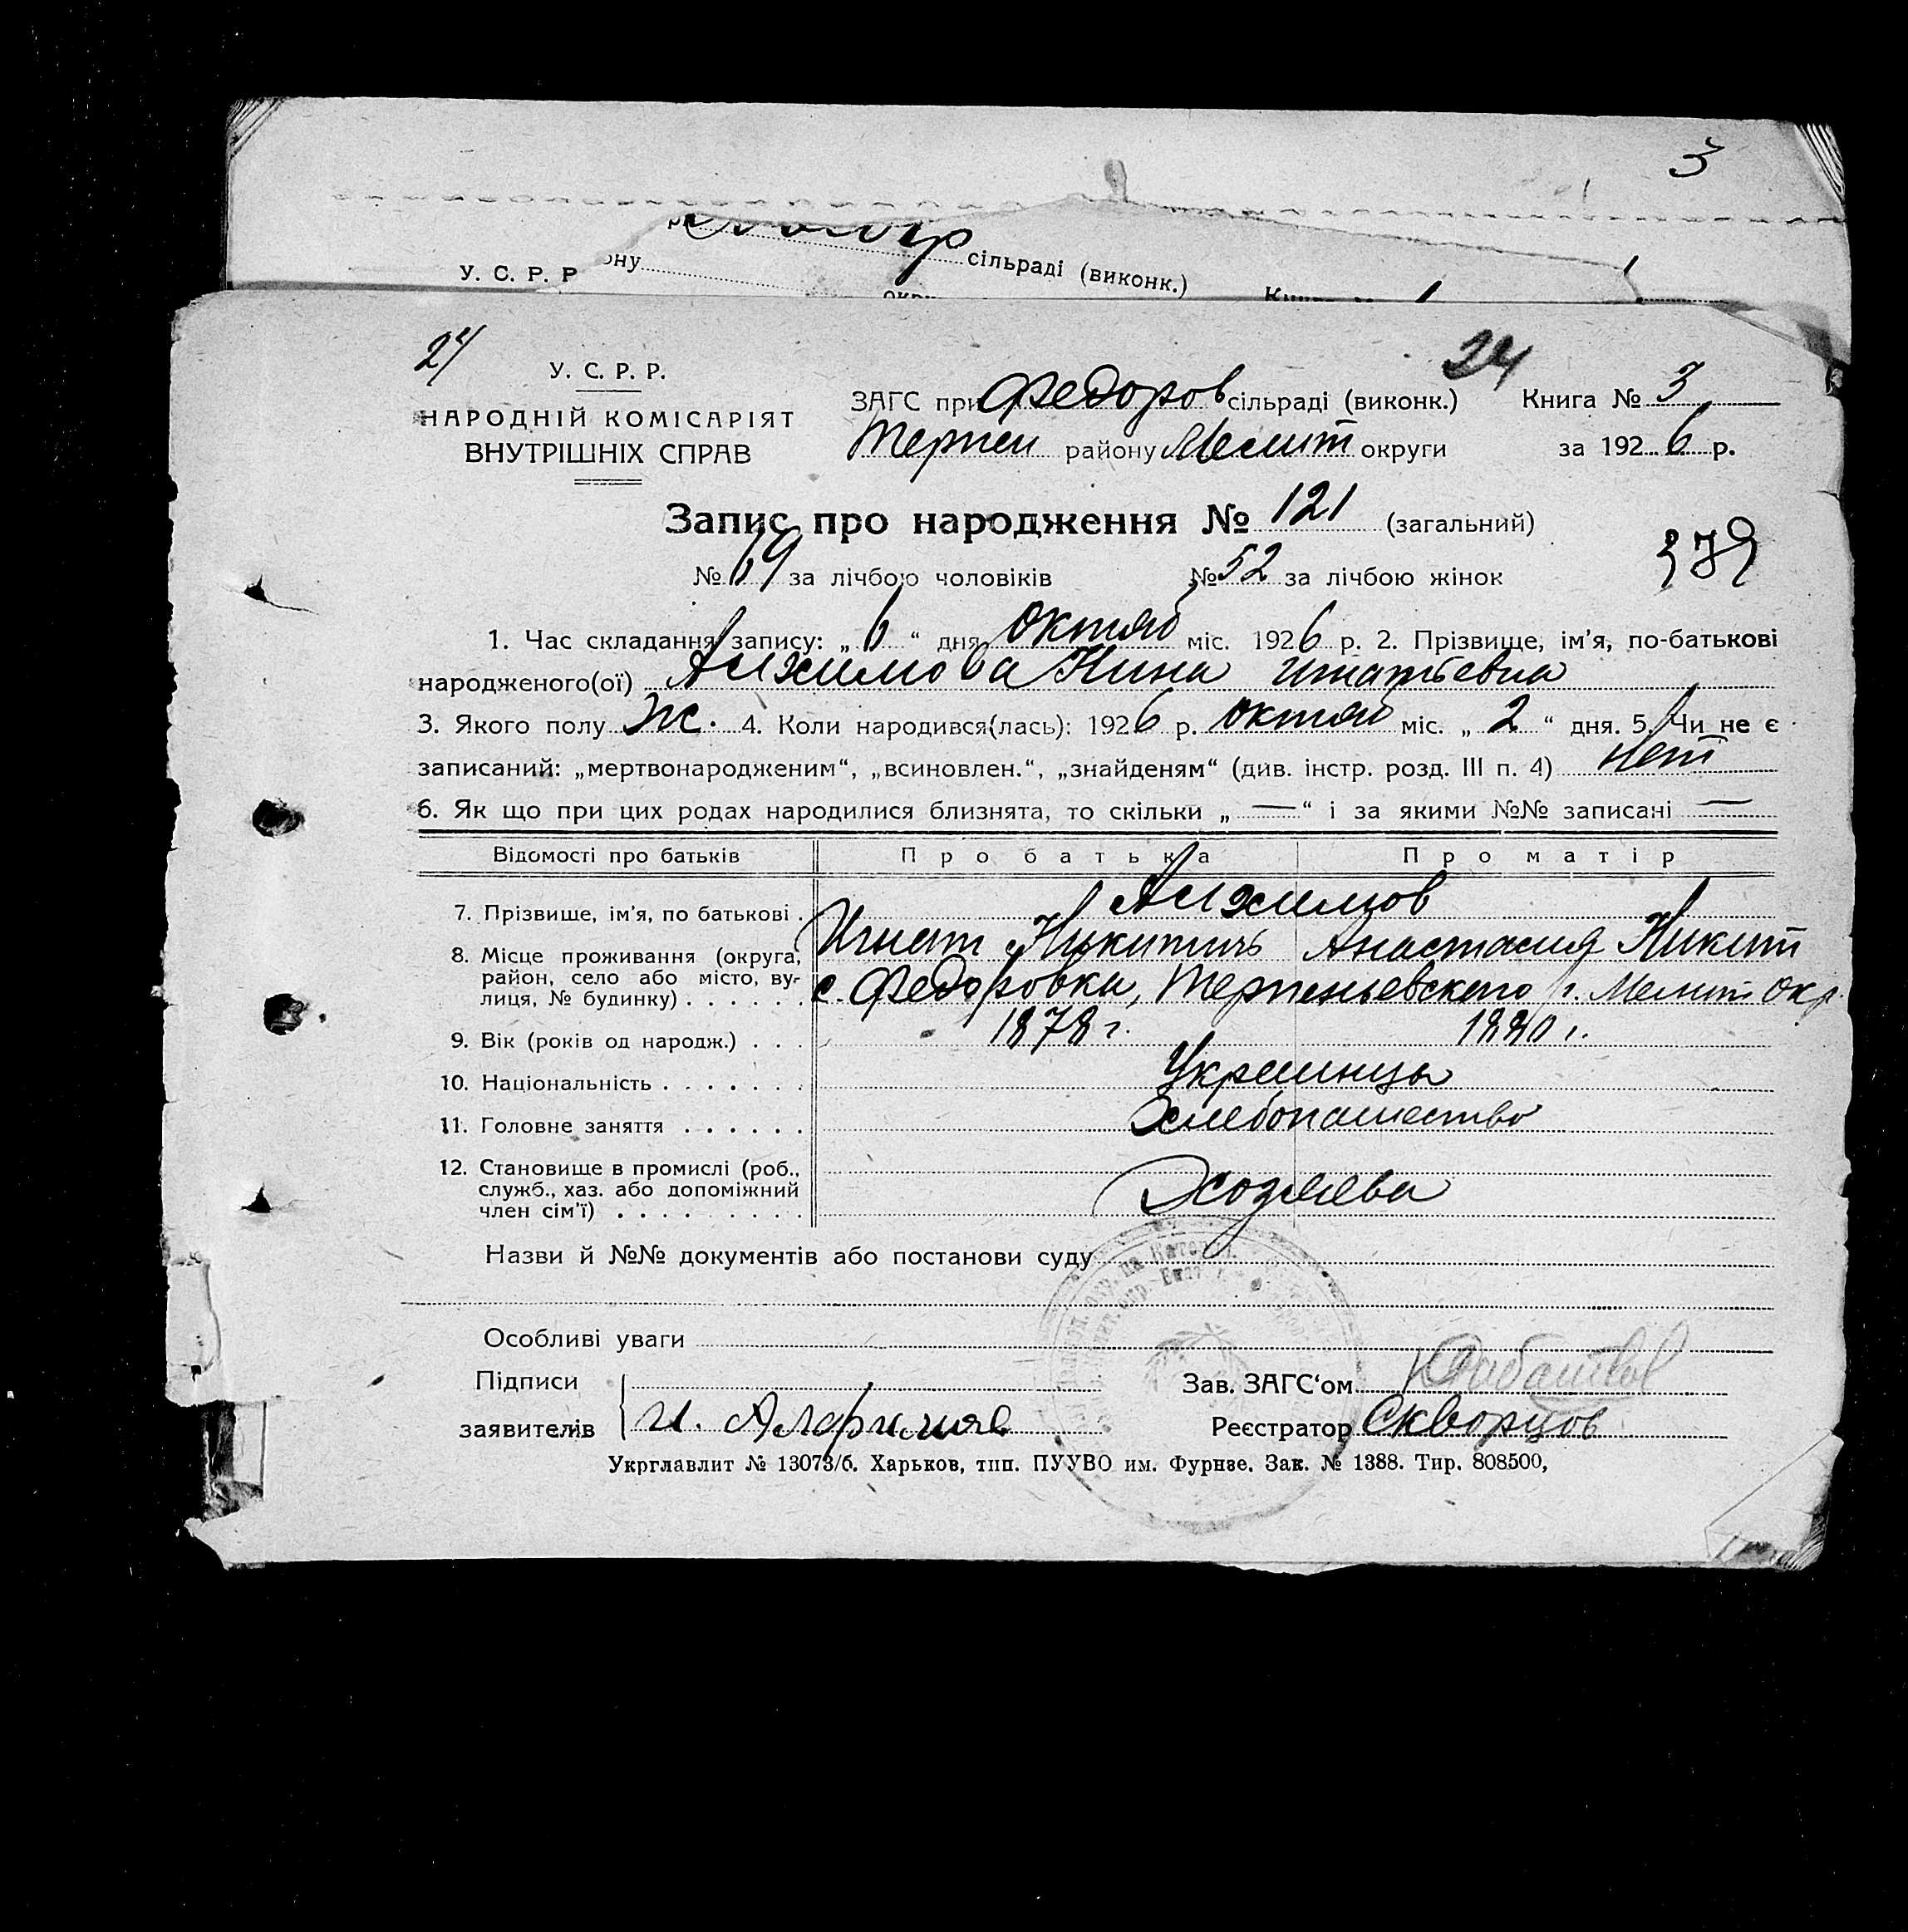 3
сільраді (виконк.)
У. С. Р. Р
ону
24
24
У. С. Р. Р.
НАРОДНІЙ КОМІСАРІЯТ
ВНУТРІШНІХ СПРАВ
ЗАГС при Федоров сільраді (виконк.) Книга № 3
Терпен району Мелит округи за 1926 р.
Запис про народження № 121 (загальний)
379
№ 69 за лічбою чоловіків № 52 за лічбою жінок
1. Час складання запису: „ 6 “ дня октяб міс. 1926 р. 2. Прізвище, ім’я, по-батькові
народженого(ої) Нина Игнатьевна
3. Якого полу ж. 4. Коли народився(лась): 1926 р. октяб міс. „ 2 “ дня. 5. Чи не є
записаний: „мертвонародженим“, „всиновлен.“, „знайденям“ (див. інстр. розд. III п. 4) нет
6. Як що при цих родах народилися близнята, то скільки „ — “ і за якими №№ записані —
Відомості про батьків Про батька Про матір
7. Прізвище, ім’я, по батькові .
Игнат Никитичь Анастасия Никит
8. Місце проживання (округа,
район, село або місто, ву-
лиця, № будинку) . . . . . . с. Федоровка, Терпеньевского р. Мелит окр.
9. Вік (років од народж.) . . . 1878 г. 1880 г.
10. Національність . . . . . . . Украинцы
11. Головне заняття . . . . . . Хлебопашество
12. Становище в промислі (роб.,
служб., хаз. або допоміжний
член сім’ї) . . . . . . . . . Хозяева
Назви й №№ документів або постанови суду
Особливі уваги
Підписи
Зав. ЗАГС‘ом
заявителів И. Реєстратор Скворцов
Укрглавлит № 13073/б. Харьков, тип. ПУУВО им. Фурнзе. Зак. № 1388. Тир. 808500,